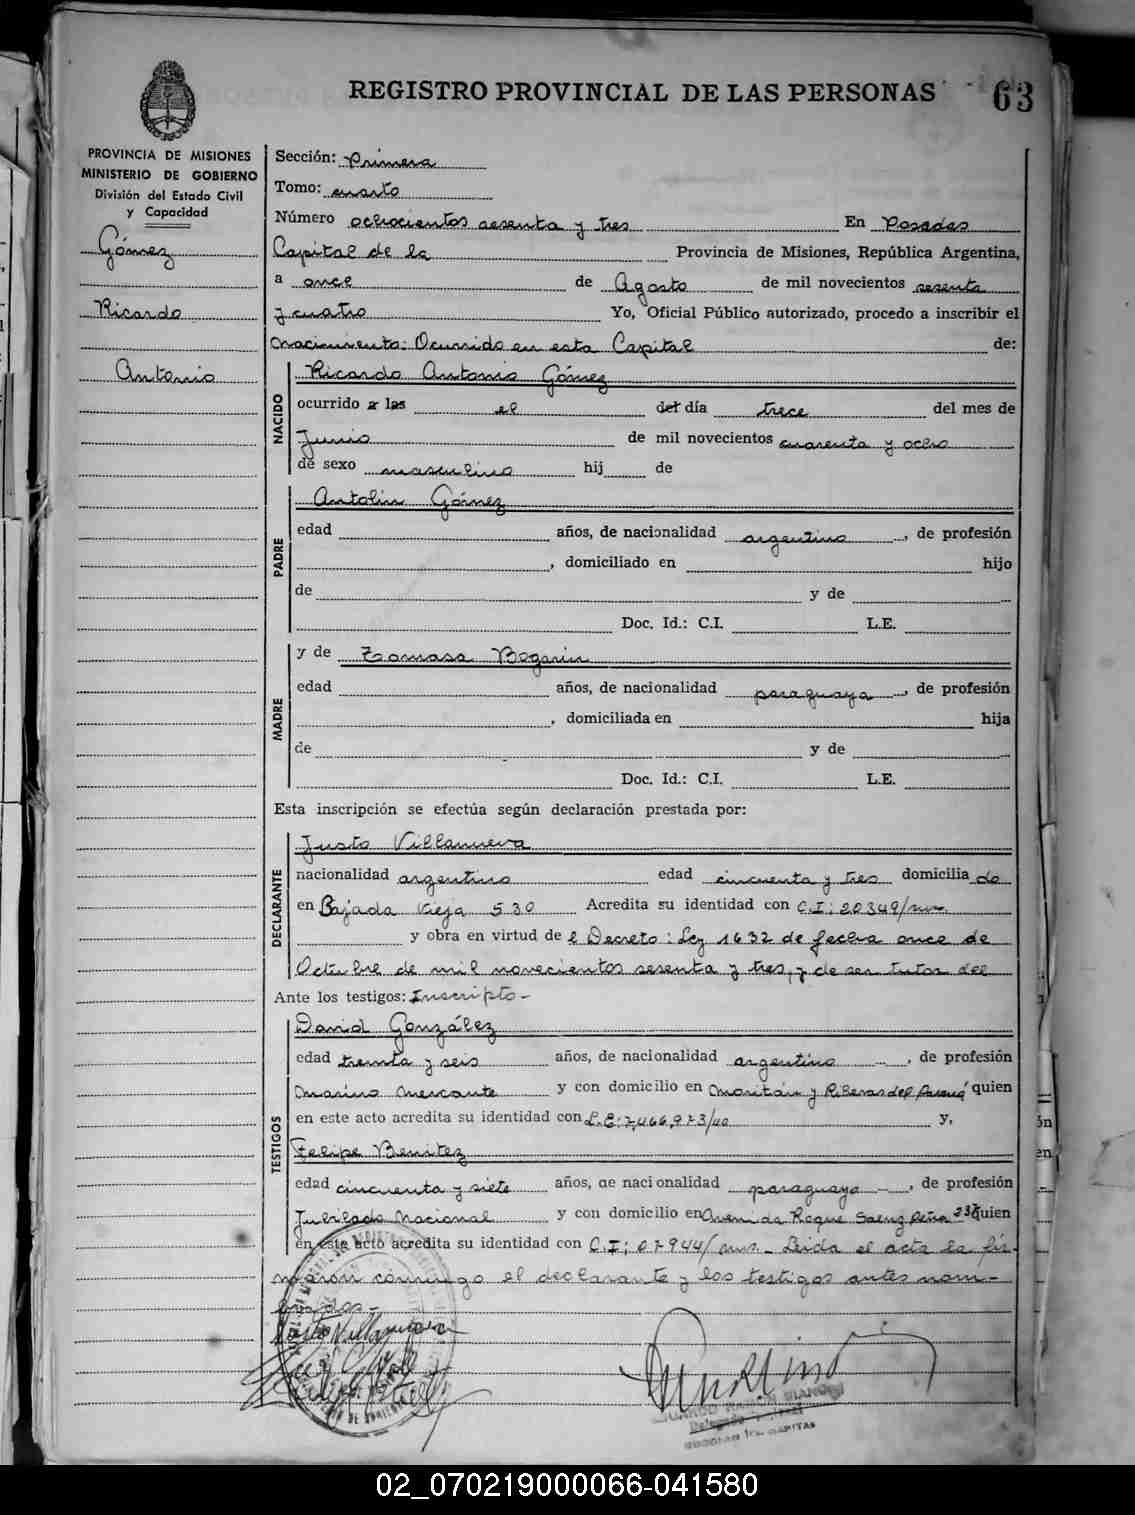 REGISTRO PROVINCIAL DE LAS PERSONAS
63
PROVINCIA DE MISIONES
MINISTERIO DE GOBIERNO
División del Estado Civil
y Capacidad
Gómez
Ricardo
Antonio
Sección: Primera
Tomo: cuarto
Número ochocientos sesenta y tres En Posadas
Capital de la Provincia de Misiones, República Argentina,
a once de Agosto de mil novecientos sesenta
y cuatro Yo, Oficial Público autorizado, procedo a inscribir el
Nacimiento: Ocurrido en esta Capital de:
NACIDO
Ricardo Antonio Gómez
ocurrido a las el del día trece del mes de
Junio de mil novecientos cuarenta y ocho
de sexo masculino hij de
PADRE
Antolin Gómez
edad años, de nacionalidad argentino, de profesión
, domiciliado en hijo
de y de
Doc. Id.: C.I. L.E.
MADRE
y de Tomasa Bogarin
edad años, de nacionalidad paraguaya, de profesión
, domiciliada en hija
de y de
Doc. Id.: C.I. L.E.
Esta inscripción se efectúa según declaración prestada por:
DECLARANTE
Justo Villanueva
nacionalidad argentino edad cincuenta y tres domicilia do
en Bajada Vieja 530 Acredita su identidad con C.I: 20349/mnes.
y obra en virtud de l Decreto: Ley 1632 de fecha once de
Octubre de mil novecientos sesenta y tres, y de ser tutor del
Ante los testigos: Inscripto-
TESTIGOS
David González
edad treinta y seis años, de nacionalidad argentino, de profesión
Marino Mercante y con domicilio en y Riberas del Paraná quien
en este acto acredita su identidad con L.E: 7,466,973/40 y,
Felipe Benitez
edad cincuenta y siete años, de nacionalidad paraguayo, de profesión
Jubilado Nacional y con domicilio en Avenida Roque Saenz Peña 237 quien
en este acto acredita su identidad con C.I: 07944/mns.- Leida el acta la fir-
maron conmigo el declarante y los testigos antes nom-
brados-
Justo Villanueva
02_070219000066-041580